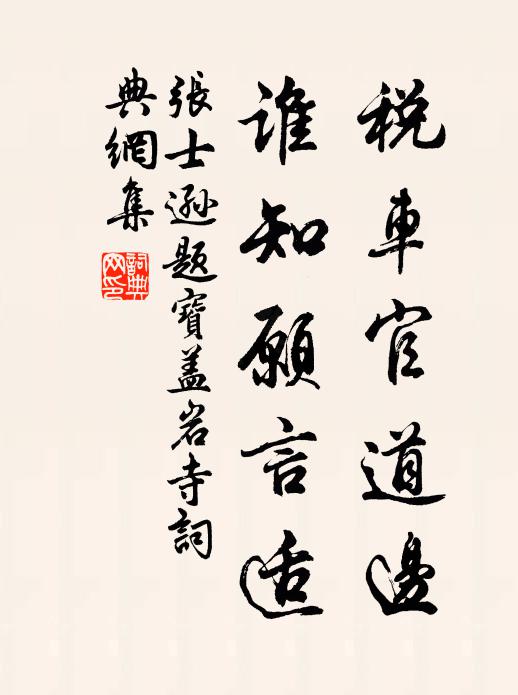 税車官道邊
誰知願言适
張士遜題寶盖岩寺詞
典網集
詞典网印